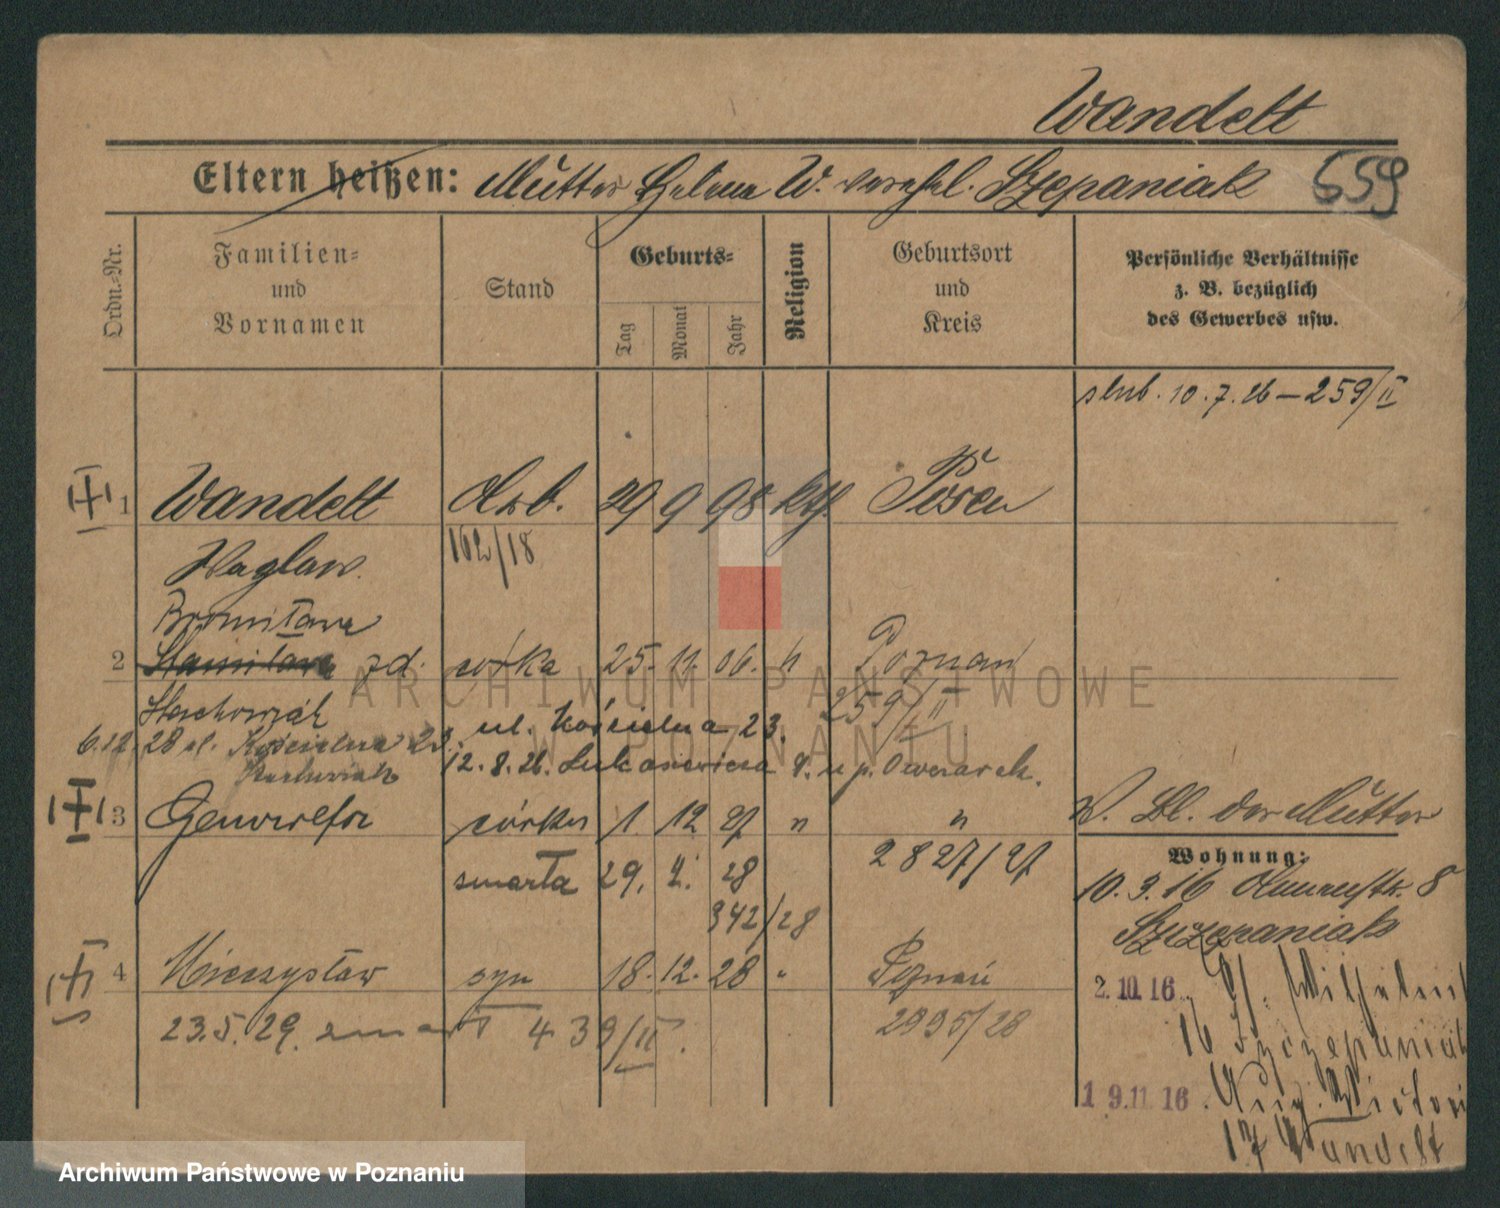 Wandelt
Eltern heißen: Mutter Helene W. verehel. Szepaniak 559
Ordn.-Nr.
Familien=
und
Vornamen
Stand
Geburts=
Tag
Monat
Jahr
Religion
Geburtsort
und
Kreis
Persönliche Verhältnisse
z. B. bezüglich
des Gewerbes usw.
slub. 10.7.26 – 259/II
1 Wandelt Arb. 29 9 98 kth Posen
Waglaw. 162/18
Bronisława
2 Stanisława zd. córka 25. 11. 06. " Poznań
Stachowiak 259/II
6.12.28 ul. Kościelna 23. ul. Kościelna 23.
Stachowiak 12.8.26. Łukasiewicza 8. u p. Owczarek.
3 Genowefa córka 1. 12 27 " " W. Bl. der Mutter
zmarła 29. 2. 28 2827/27
342/28
Wohnung:
10.3.16 8
Szczepaniak
4 Mieczysław syn 18. 12. 28 " Poznań
23.5.29. zmarł 439/II. 2995/28
2.10.16. Wilhelm
16 Szczepaniak
19.11.16. Aug. Victori
17 Wandelt
ARCHIWUM PAŃSTWOWE
W POZNANIU
Archiwum Państwowe w Poznaniu